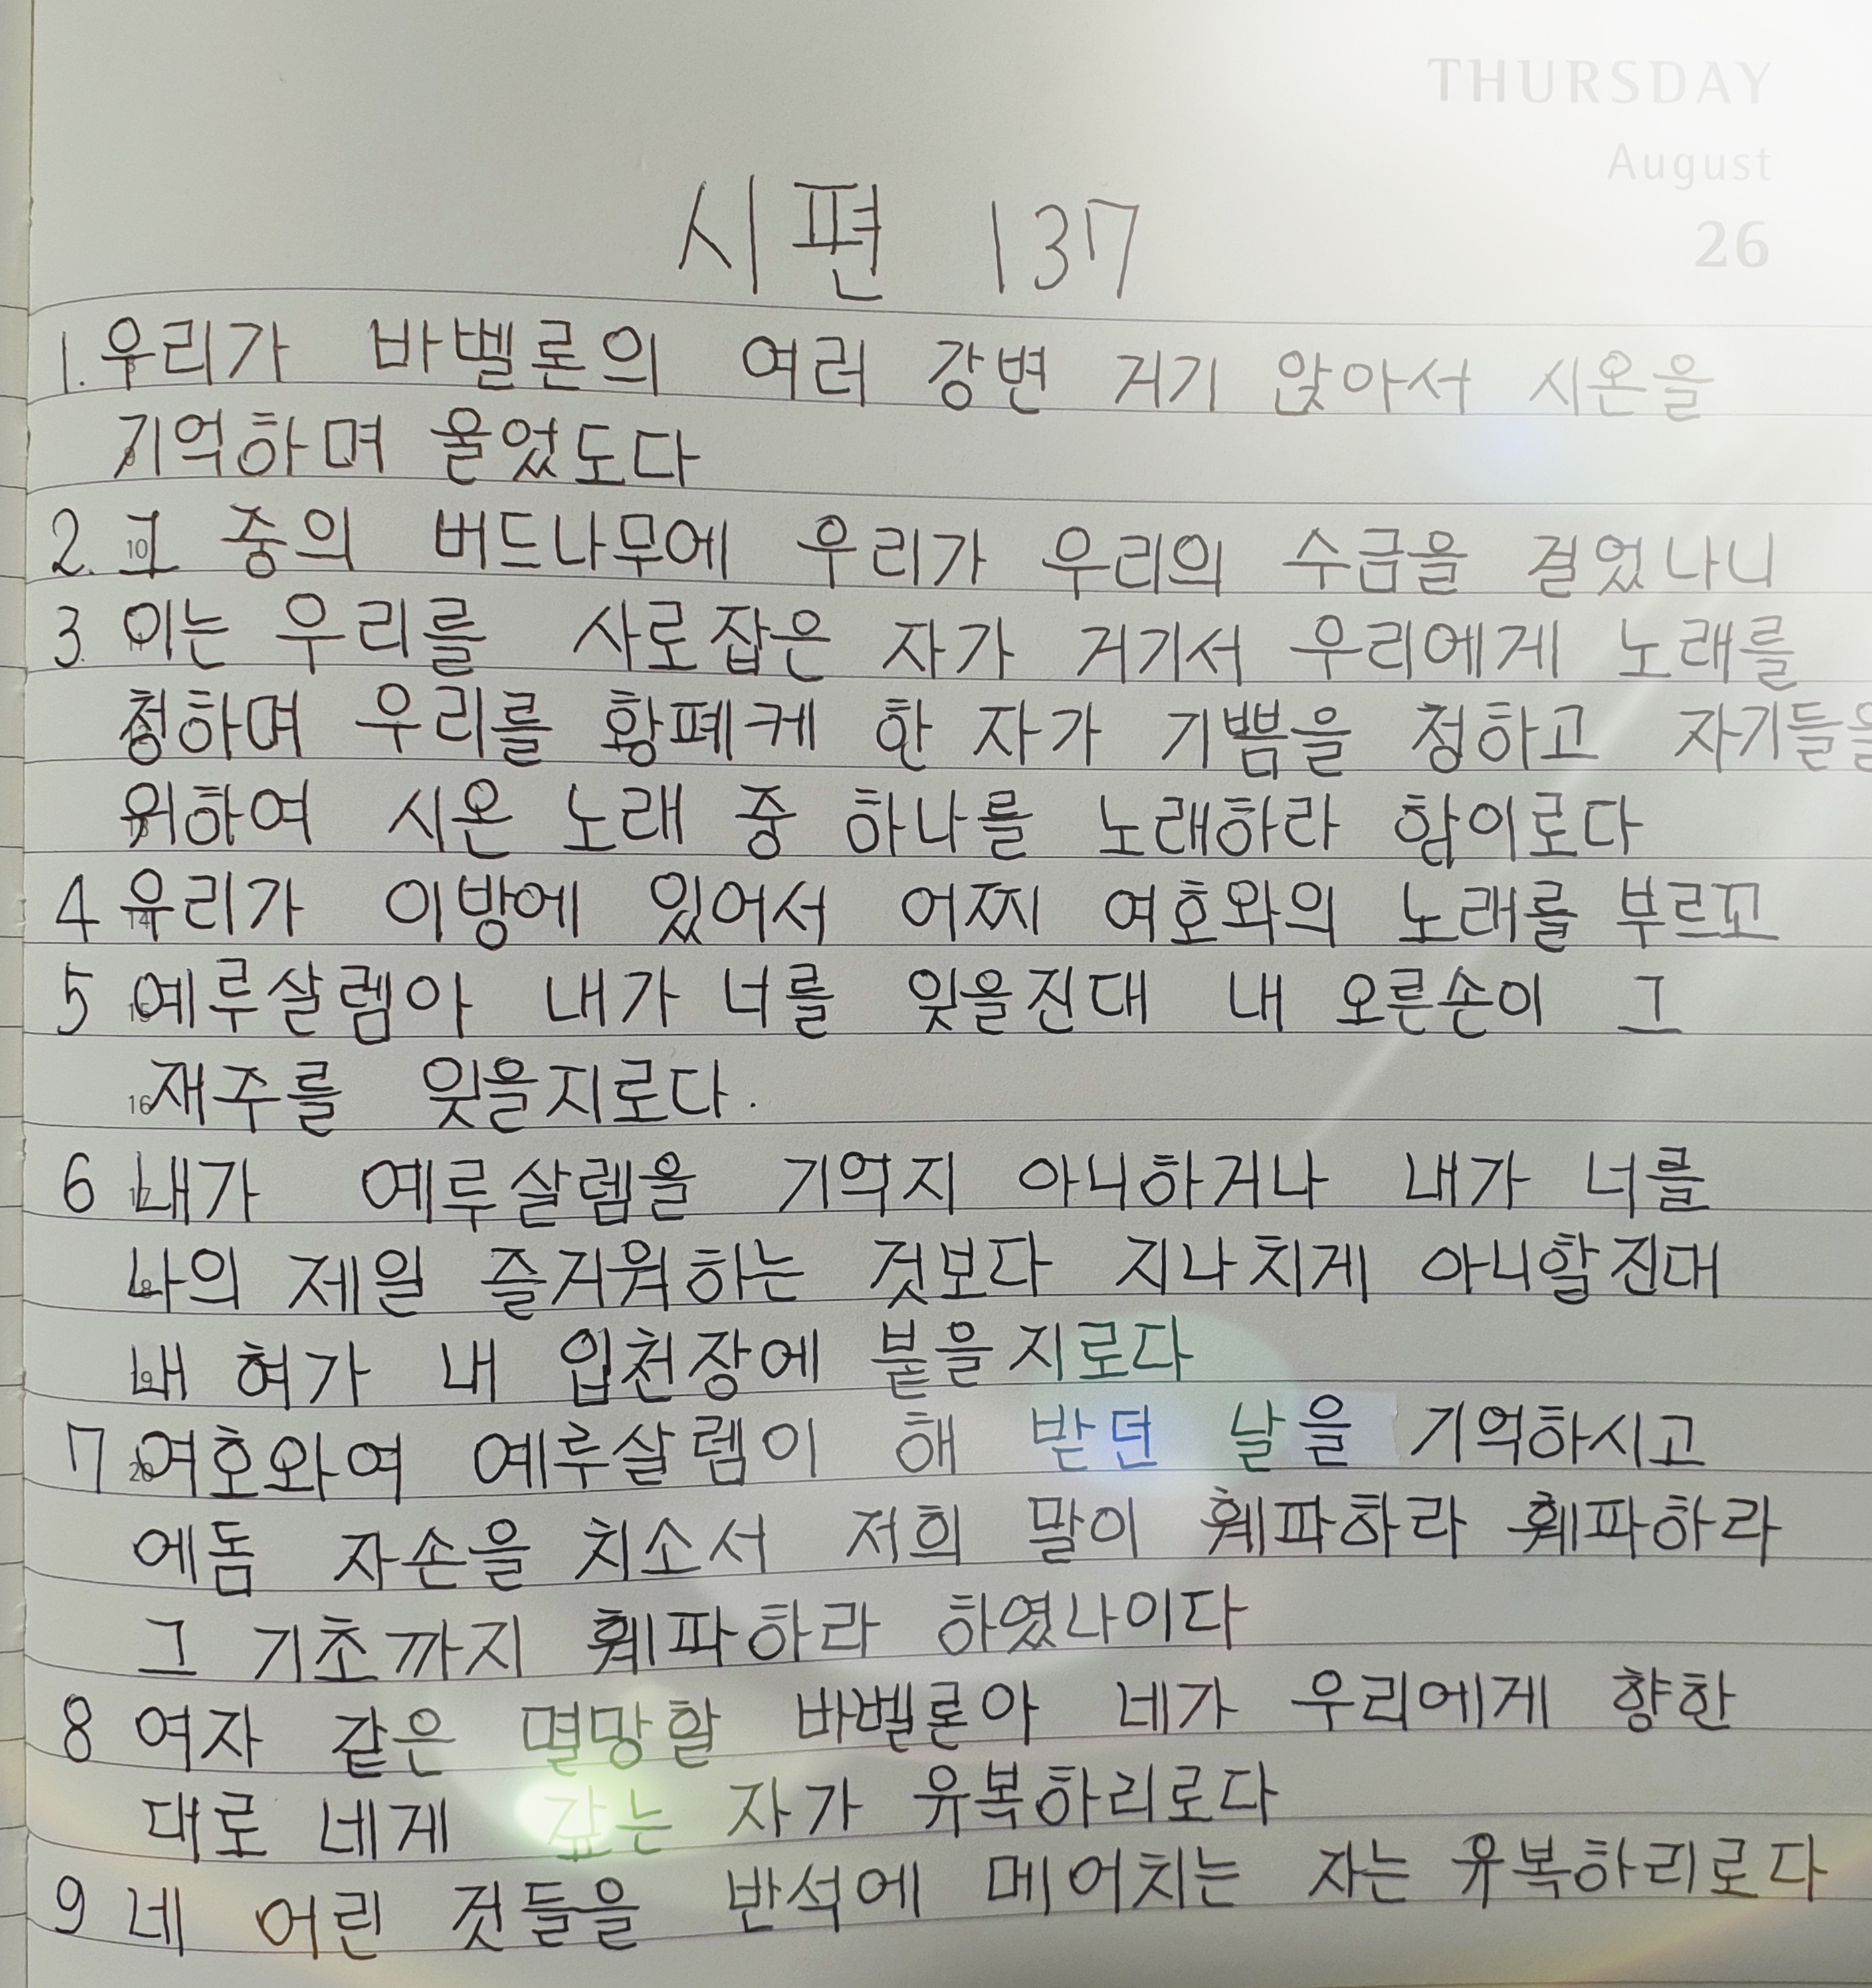 THURSDAY
August
26
시편 137
1. 우리가 바벨론의 여러 강변 거기 앉아서 시온을
기억하며 울었도다
2. 그 중의 버드나무에 우리가 우리의 수금을 걸었나니
3. 이는 우리를 사로잡은 자가 거기서 우리에게 노래를
청하며 우리를 황폐케 한 자가 기쁨을 청하고 자기들을
위하여 시온 노래 중 하나를 노래하라 함이로다
4 우리가 이방에 있어서 어찌 여호와의 노래를 부르꼬
5 예루살렘아 내가 너를 잊을진대 내 오른손이 그
재주를 잊을지로다.
6 내가 예루살렘을 기억지 아니하거나 내가 너를
나의 제일 즐거워하는 것보다 지나치게 아니할진대
내 혀가 내 입천장에 붙을지로다
7 여호와여 예루살렘이 해 받던 날을 기억하시고
에돔 자손을 치소서 저희 말이 훼파하라 훼파하라
그 기초까지 훼파하라 하였나이다
8 여자 같은 멸망할 바벨론아 네가 우리에게 향한
대로 네게 갚는 자가 유복하리로다
9 네 어린 것들을 반석에 메어치는 자는 유복하리로다